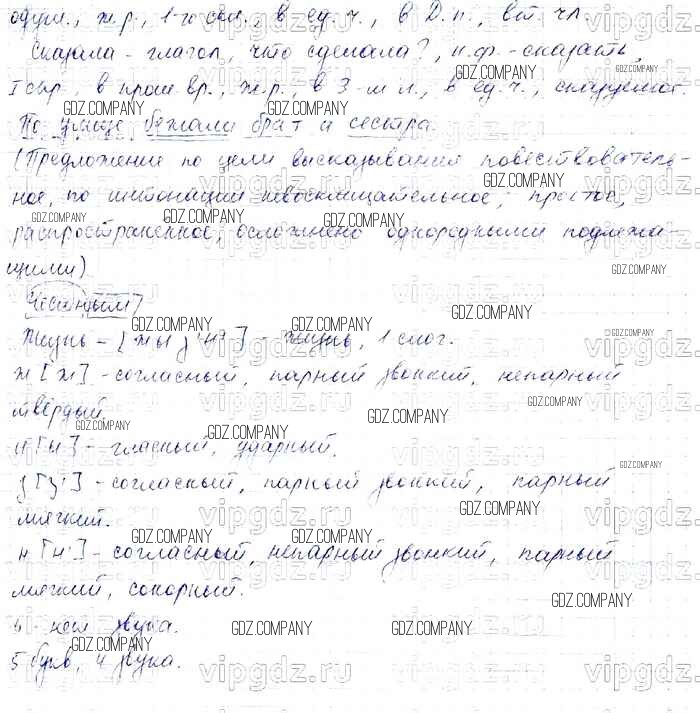 одуш., ж.р., 1-го скл., в ед.ч., в Д.п., вт. чл.
Сказала - глагол, что сделала?, н.ф. - сказать,
I спр., в прош. вр., ж.р., в 3-м л., в ед.ч., сказуемое.
По улице бежали брат и сестра
(Предложение по цели высказывания повествователь-
ное, по интонации невосклицательное, простое,
распространенное, осложнено однородными подлежа-
щими)
Честным
Жизнь - [жыз'н'] - жизнь, 1 слог.
ж [ж] - согласный, парный звонкий, непарный
твёрдый.
и [ы] - гласный, ударный.
з [з'] - согласный, парный звонкий, парный
мягкий.
н [н'] - согласный, непарный звонкий, парный
мягкий, сонорный.
ь - нет звука.
5 букв, 4 звука.
GDZ.COMPANY
vipgdz.ru